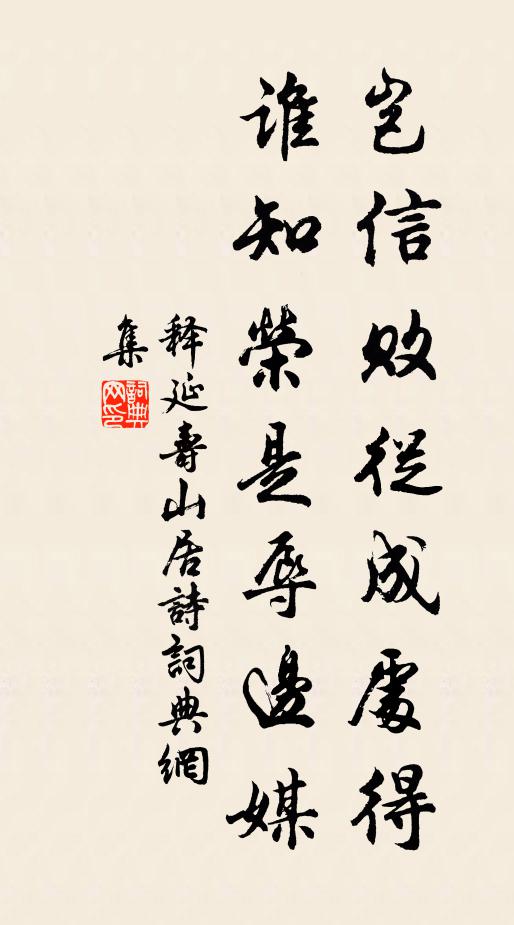 豈信敗從成處得
誰知榮是辱邊媒
釋延壽山居詩詞典網
集
詞典
网印